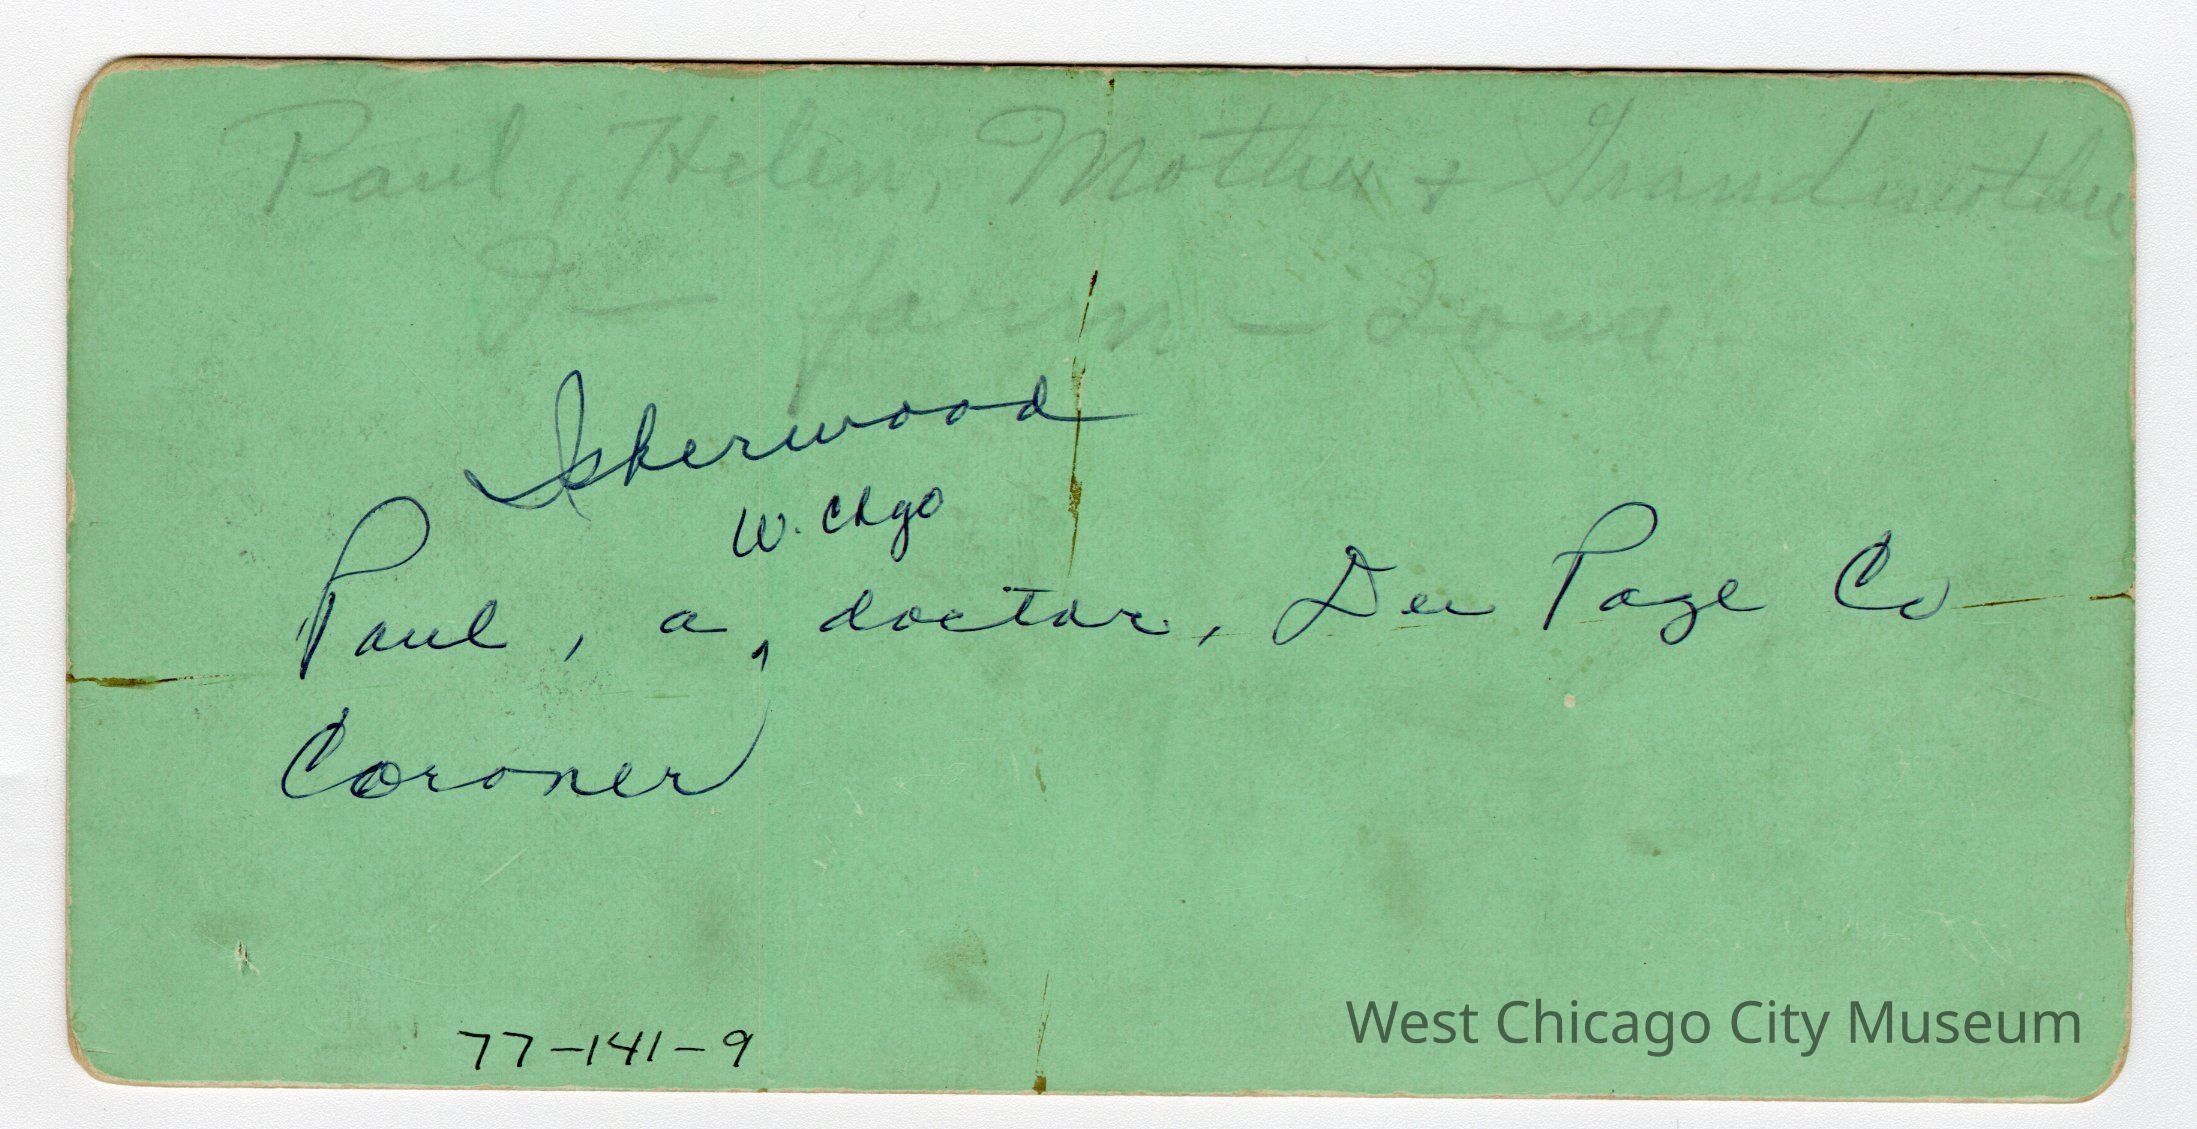 Paul, Helen, Mother + Grandmother
I — farm — Iowa.
Isherwood
W. Chgo
Paul, a, doctor, Du Page Co
Coroner
77-141-9
West Chicago City Museum